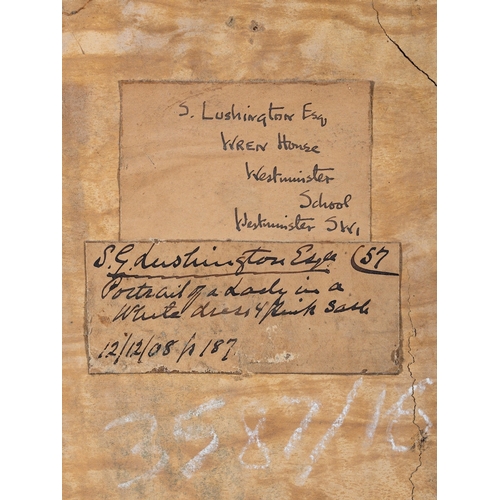 S. Lushington Esq
WREN House
Westminster
School
Westminster SW1
S. G. Lushington Esqr (57
Portrait of a Lady in a
White dress & Pink Sash
12/12/08 p 187
3587/16